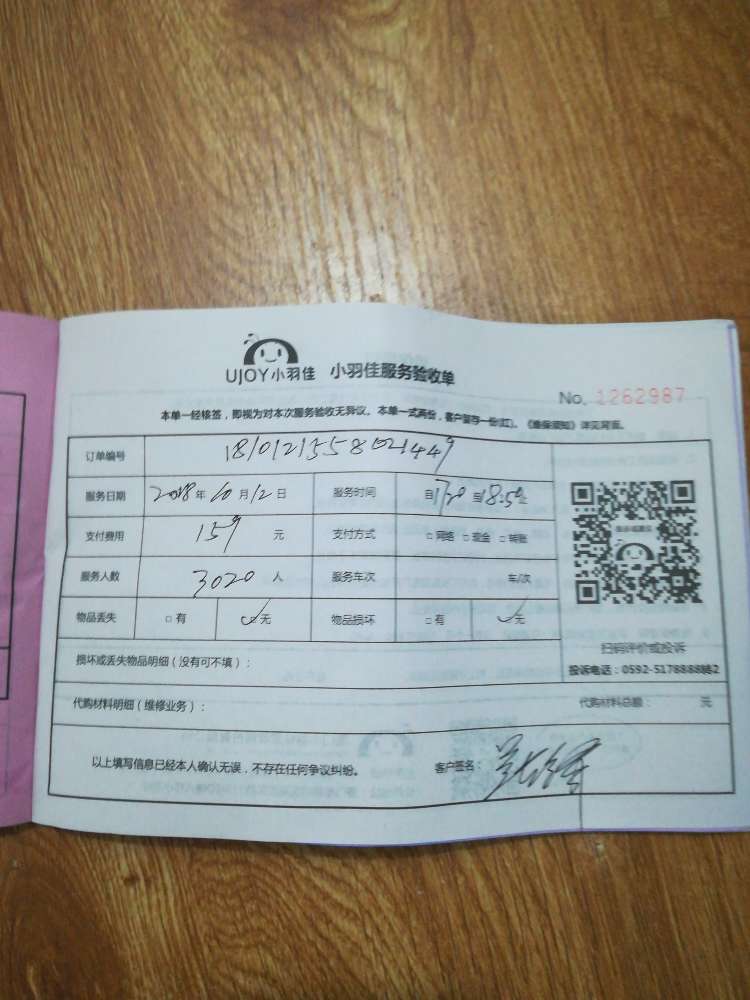 UJOY小羽佳 小羽佳服务验收单
No. 1262987
本单一经核签，即视为对本次服务验收无异议。本单一式两份，客户留存一份(红)。《维保须知》详见背面。
订单编号
服务日期 2018年10月12日 服务时间 自17:20至18:59
支付费用 159 元 支付方式 □网络 □现金 □转账
服务人数 3020 人 服务车次 车/次
物品丢失 □有 ✓无 物品损坏 □有 ✓无
扫码评价或投诉
投诉电话：0592-5178888转2
损坏或丢失物品明细（没有可不填）：
代购材料明细（维修业务）： 代购材料总额： 元
以上填写信息已经本人确认无误，不存在任何争议纠纷。 客户签名：